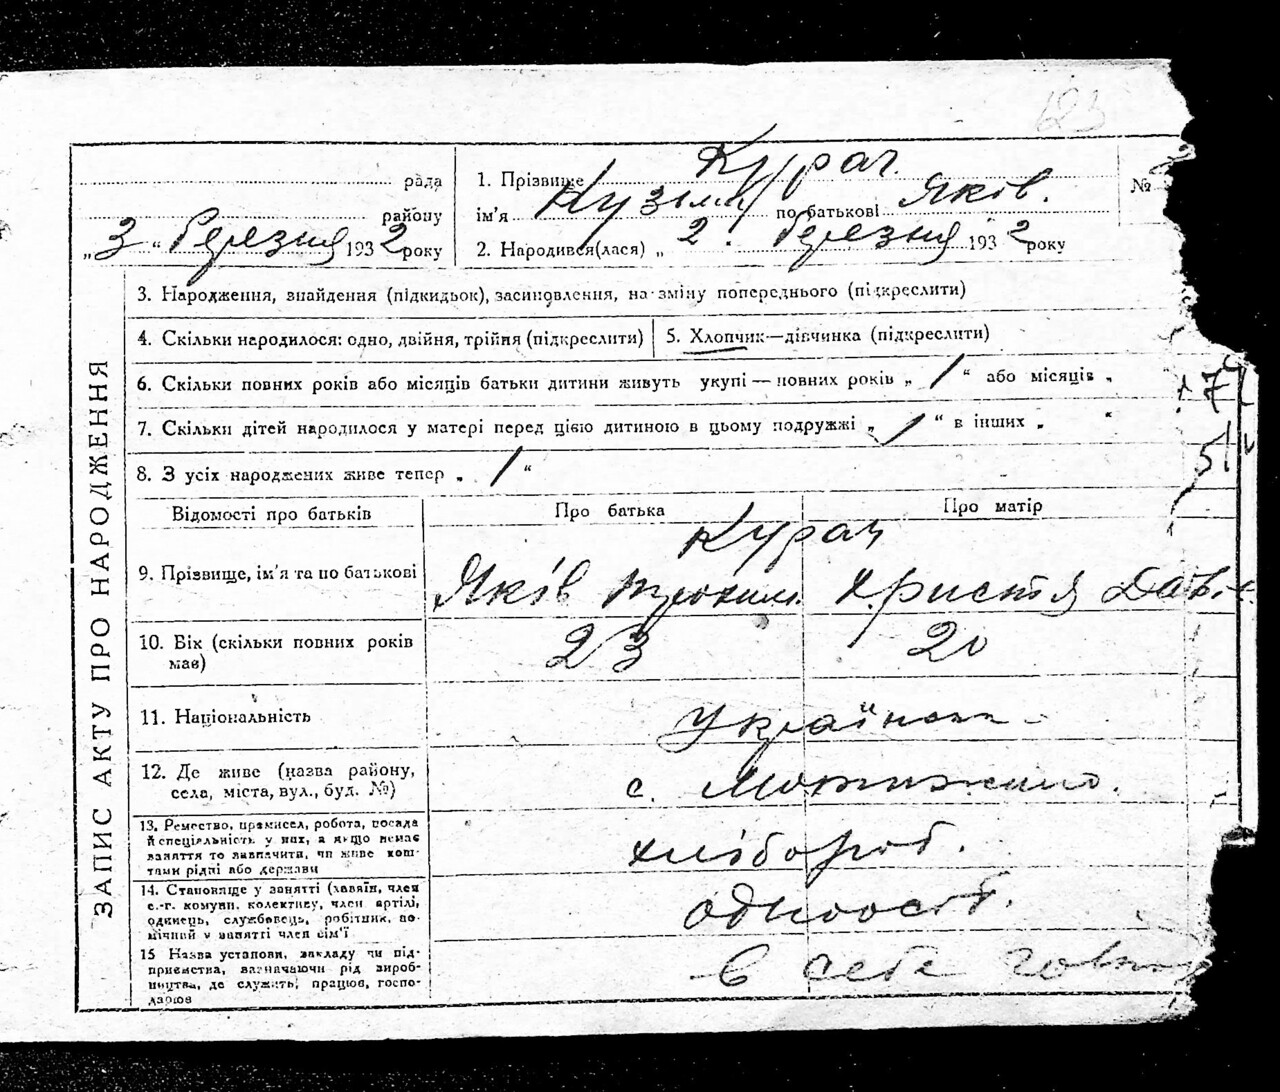 623
Курач.
рада 1. Прізвище №
району ім'я Кузьма по батькові Яків.
„ 3 " Березня 193 2 року 2. Народився(лася) „ 2. Березня 193 2 року
ЗАПИС АКТУ ПРО НАРОДЖЕННЯ
3. Народження, знайдення (підкидьок), засиновлення, на зміну попереднього (підкреслити)
4. Скільки народилося: одно, двійня, трійня (підкреслити) 5. Хлопчик—дівчинка (підкреслити)
6. Скільки повних років або місяців батьки дитини живуть укупі — повних років „ 1 " або місяців „
7. Скільки дітей народилося у матері перед цією дитиною в цьому подружжі „ 1 " в інших „ "
8. З усіх народжених живе тепер „ 1 "
Відомості про батьків Про батька Про матір
Курач
9. Прізвище, ім'я та по батькові Яків Христя Дав.
10. Вік (скільки повних років має) 23 20
11. Національність
12. Де живе (назва району, села, міста, вул., буд. №) с.
13. Ремество, промисел, робота, посада
й спеціяльність у них, а якщо немає
заняття то зазначити, чи живе кош-
тами рідні або держави
хлібороб.
14. Становище у занятті (хазяїн, член
с.-г. комуни, колективу, член артілі,
одинець, службовець, робітник, по-
мічний у занятті член сім'ї
одноосіб.
15 Назва установи, закладу чи під-
приємства, зазначаючи рід вироб-
ництва, де служить, працює, госпо-
дарює
в себе